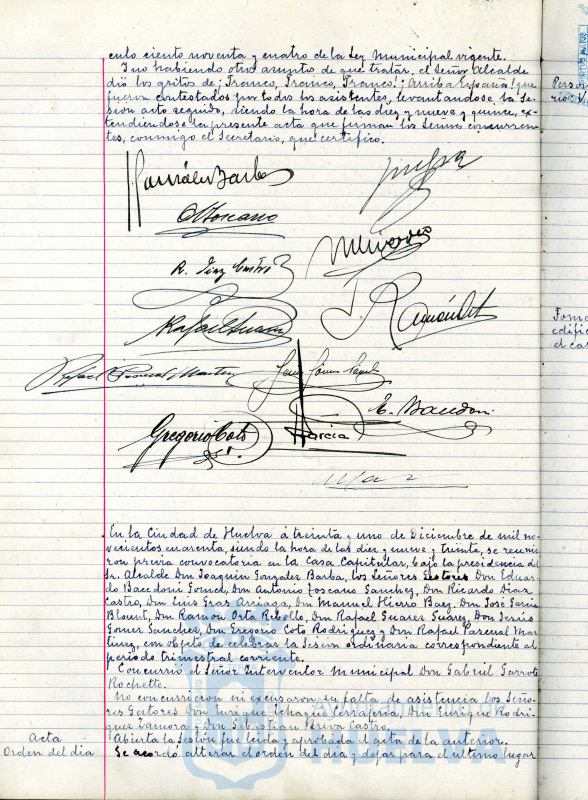 culo ciento noventa y cuatro de la Ley Municipal vigente.
Y no habiendo otro asunto de que tratar, el Señor Alcalde
dió los gritos de ¡Franco, Franco, Franco! ¡Arriba España! que
fueron contestados por todos los asistentes, levantandose la Se-
sion acto seguido, siendo la hora de las diez y nueve y quince, ex-
tendiendose la presente acta que firman los Señores concurren-
tes, conmigo el Secretario, que certifico.
González Barba
A. Toscano
R. Diaz Castro
Rafael Suarez
Rafael Pascual Martinez
E. Bacedoni
Gregorio Coto
García
En la Ciudad de Huelva á treinta y uno de Diciembre de mil no-
vecientos cuarenta, siendo la hora de las diez y nueve y treinta, se reunie-
ron previa convocatoria en la Casa Capitular, bajo la presidencia del
Sr. Alcalde Don Joaquin Gonzalez Barba, los Señores Gestores Don Eduar-
do Bacedoni Gomez, Don Antonio Toscano Sanchez, Don Ricardo Diaz
Castro, Don Luis Gras Arriaga, Don Manuel Hierro Baez, Don José Garcia
Blount, Don Ramón Orta Rebollo, Don Rafael Suarez Suarez, Don Jesús
Gomez Sanchez, Don Gregorio Coto Rodriguez y Don Rafael Pascual Mar-
tinez, con objeto de celebrar la Sesion ordinaria correspondiente al
periodo trimestral corriente.
Concurrió el Señor Interventor Municipal Don Gabriel Garrote
Rochette.
No concurrieron ni excusaron su falta de asistencia los Seño-
res Gestores Don Enrique Echague Don Enrique Rodri-
guez Zamora y Don Sebastian Castro.
Acta Abierta la Sesión fue leida y aprobada el acta de la anterior.
Orden del dia Se acordó alterar el orden del dia y dejar para el ultimo lugar
Ayuntamiento de
HUELVA